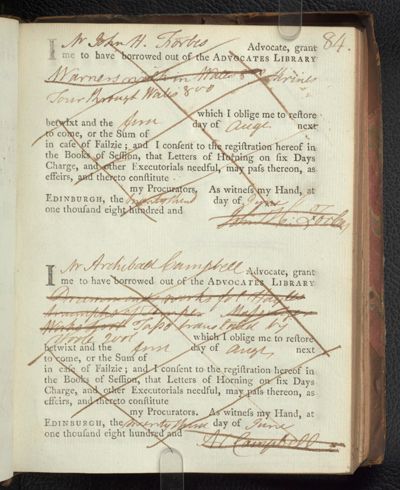 84.
I Mr John H. Forbes Advocate, grant
me to have borrowed out of the ADVOCATES LIBRARY
Warners walk in Wales &
Tour through Wales 8vo
which I oblige me to restore
betwixt and the day of Augt next
to come, or the Sum of
in case of Failzie; and I consent to the registration hereof in
the Books of Session, that Letters of Horning on six Days
Charge, and other Executorials needful, may pass thereon, as
effeirs, and thereto constitute
my Procurators. As witness my Hand, at
EDINBURGH, the day of
one thousand eight hundred and
John H. Forbes
I Mr Archibald Campbell Advocate, grant
me to have borrowed out of the ADVOCATES LIBRARY
works
Tasso translated by
which I oblige me to restore
betwixt and the day of Augt next
to come, or the Sum of
in case of Failzie; and I consent to the registration hereof in
the Books of Session, that Letters of Horning on six Days
Charge, and other Executorials needful, may pass thereon, as
effeirs, and thereto constitute
my Procurators. As witness my Hand, at
EDINBURGH, the day of June
one thousand eight hundred and
Ar Campbell